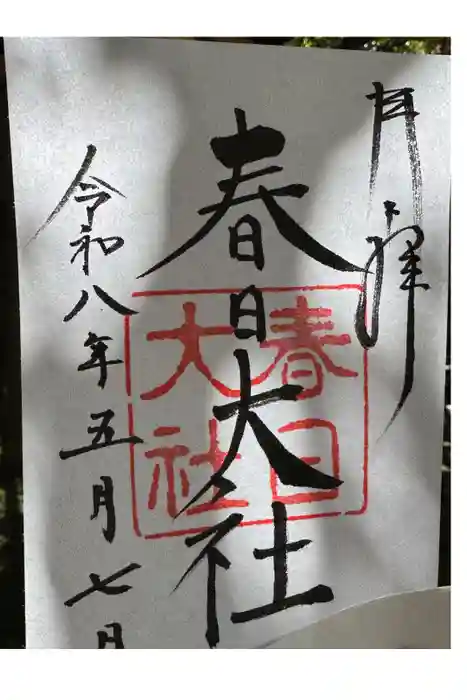 奉拝
春日大社
春日
大社
令和八年五月七日